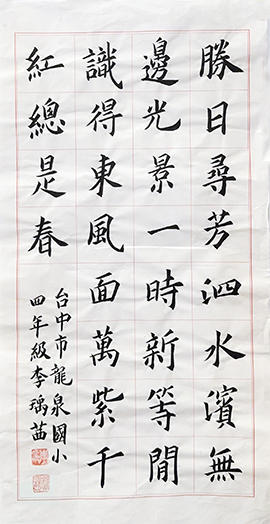 勝日尋芳泗水濱無
邊光景一時新等閒
識得東風面萬紫千
紅總是春
台中市龍泉國小
四年級李瑀茵